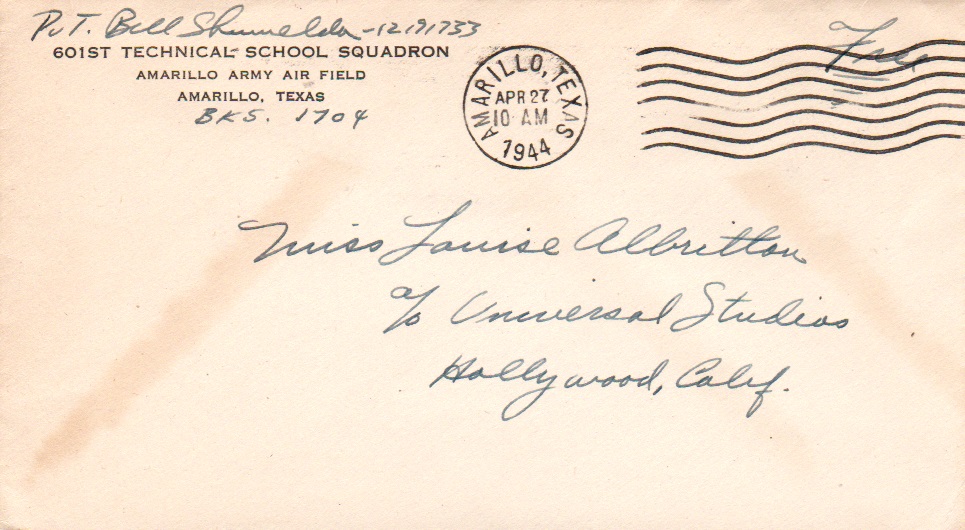 Pvt. Bill -12191733
601ST TECHNICAL SCHOOL SQUADRON
AMARILLO ARMY AIR FIELD
AMARILLO, TEXAS
BKS. 1704
AMARILLO, TEXAS
APR 27
10 AM
1944
Free
Miss Louise Albritton
c/o Universal Studios
Hollywood, Calif.